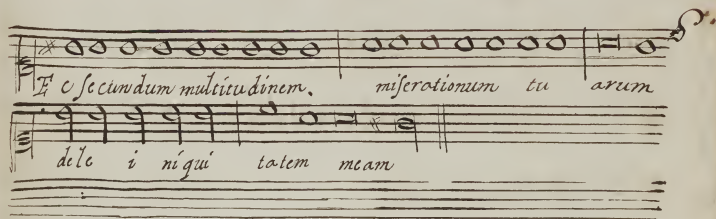 Et secundum multitudinem. miserationum tu arum
dele i niqui tatem meam